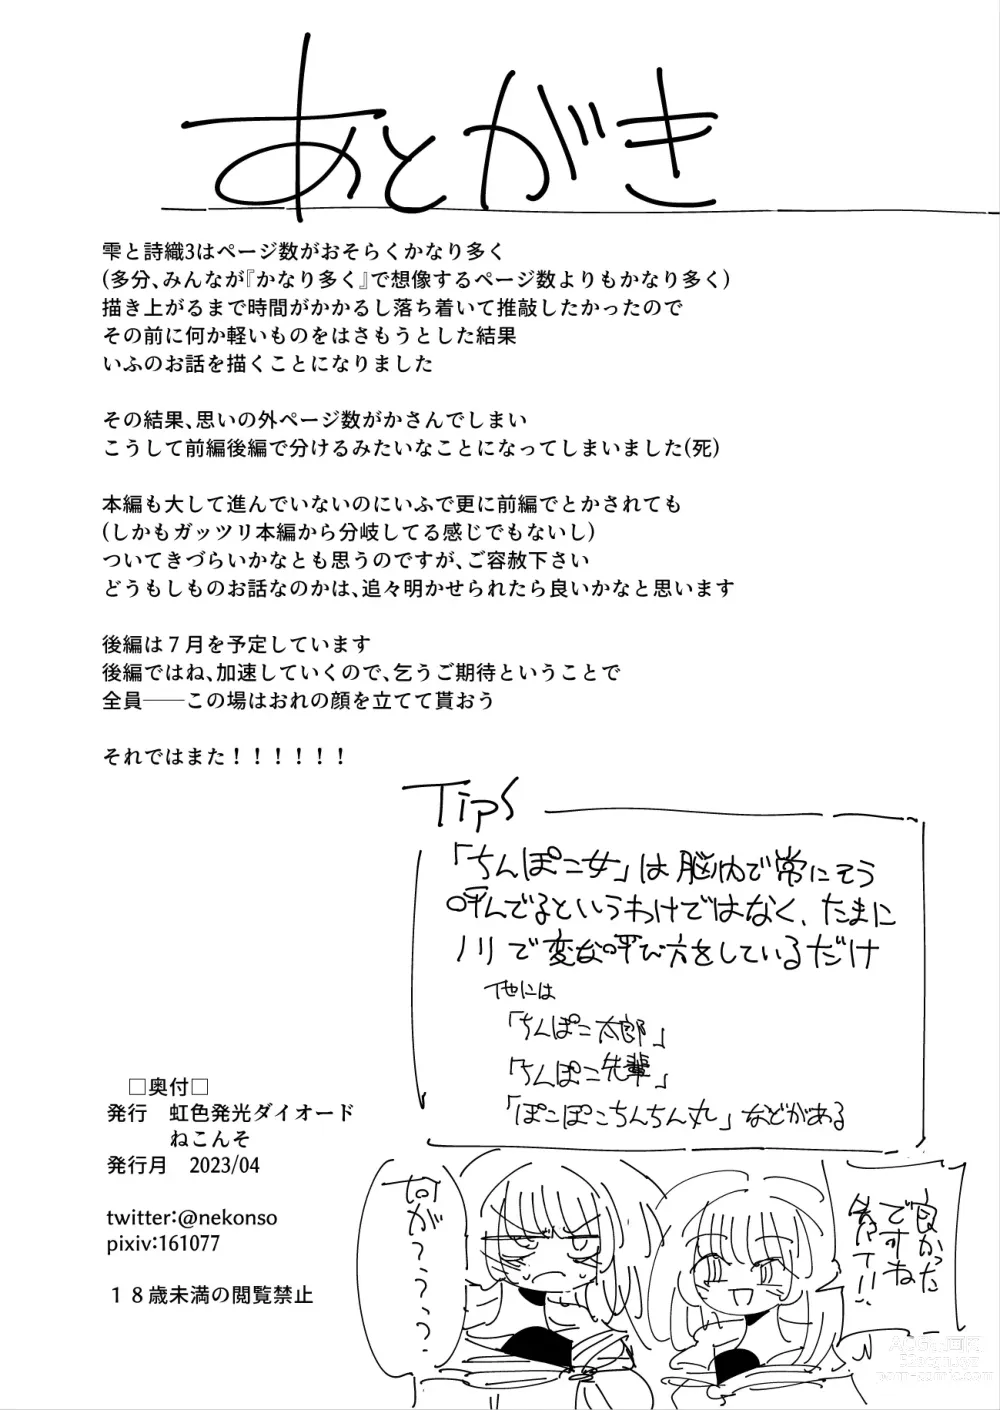 あとがき
雫と詩織3はページ数がおそらくかなり多く
(多分、みんなが『かなり多く』で想像するページ数よりもかなり多く)
描き上がるまで時間がかかるし落ち着いて推敲したかったので
その前に何か軽いものをはさもうとした結果
いふのお話を描くことになりました
その結果、思いの外ページ数がかさんでしまい
こうして前編後編で分けるみたいなことになってしまいました(死)
本編も大して進んでいないのにいふで更に前編でとかされても
(しかもガッツリ本編から分岐してる感じでもないし)
ついてきづらいかなとも思うのですが、ご容赦下さい
どうもしものお話なのかは、追々明かせられたら良いかなと思います
後編は７月を予定しています
後編ではね、加速していくので、乞うご期待ということで
全員──この場はおれの顔を立てて貰おう
それではまた！！！！！！
Tips
「ちんぽこ女」は脳内で常にそう
呼んでるというわけではなく、たまに
ノリで変な呼び方をしているだけ
他には
「ちんぽこ太郎」
「ちんぽこ先輩」
「ぽこぽこちんちん丸」などがある
□奥付□
発行　虹色発光ダイオード
ねこんそ
発行月　2023/04
twitter:@nekonso
pixiv:161077
１８歳未満の閲覧禁止
良かった
ですね
先輩!!
何が？うっ？